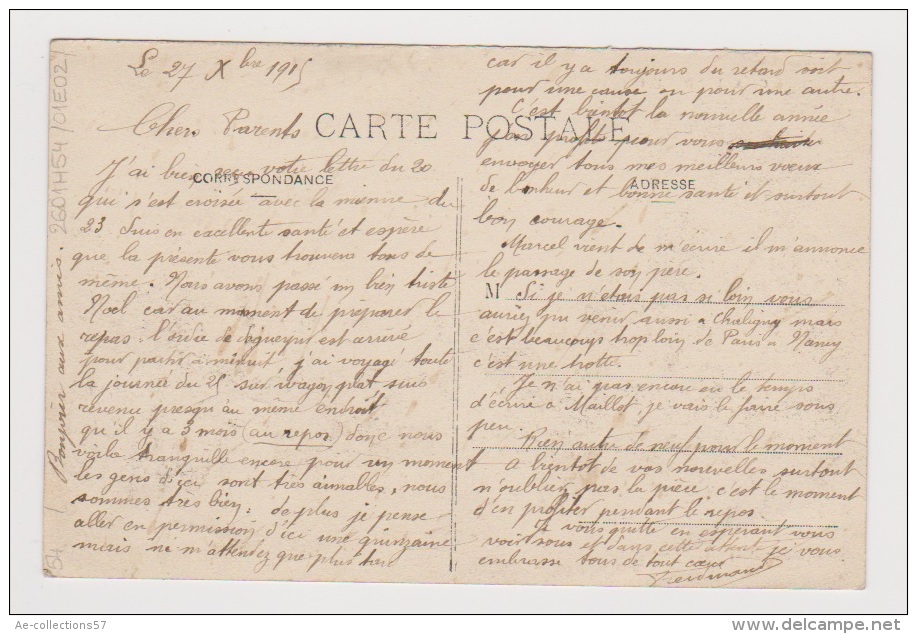 Le 27 Xbre 1915
Chers Parents
CARTE POSTALE
CORRESPONDANCE
J'ai bien reçu votre lettre du 20
qui s'est croisée avec la mienne du
23 Suis en excellente santé et espère
que la présente vous trouvera tous de
même. Nous avons passé un bien triste
Noël car au moment de préparer le
repas l'ordre de déguerpir est arrivé
pour partir à minuit j'ai voyagé toute
la journée du 25 sur wagon plat suis
revenu presqu'au même endroit
qu'il y a 3 mois (au repos) donc nous
voila tranquille encore pour un moment
les gens d'ici sont très aimables, nous
sommes très bien; de plus je pense
aller en permission d'ici une quinzaine
mais ne m'attendez que plus tard
ADRESSE
car il y a toujours du retard soit
pour une cause ou pour une autre.
C'est bientot la nouvelle année
j'en profite pour vous
envoyer tous mes meilleurs vœux
de bonheur et bonne santé et surtout
bon courage.
Marcel vient de m'écrire il m'annonce
le passage de son père.
M
Si je n'étais pas si loin vous
auriez pu venir aussi a Chaligny mais
c'est beaucoup trop loin de Paris a Nancy
c'est une trotte.
Je n'ai pas encore eu le temps
d'écrire a Maillot je vais le faire sous
peu.
Rien autre de neuf pour le moment
A bientot de vos nouvelles surtout
n'oubliez pas la pièce c'est le moment
d'en profiter pendant le repos.
Je vous quitte en espérant vous
voir tous et dans cette attente je vous
embrasse tous de tout cœur
Ferdinand
Bonjour aux amis.
2601H54 /01E02/
54 /
Ae-collections57
www.delcampe.net